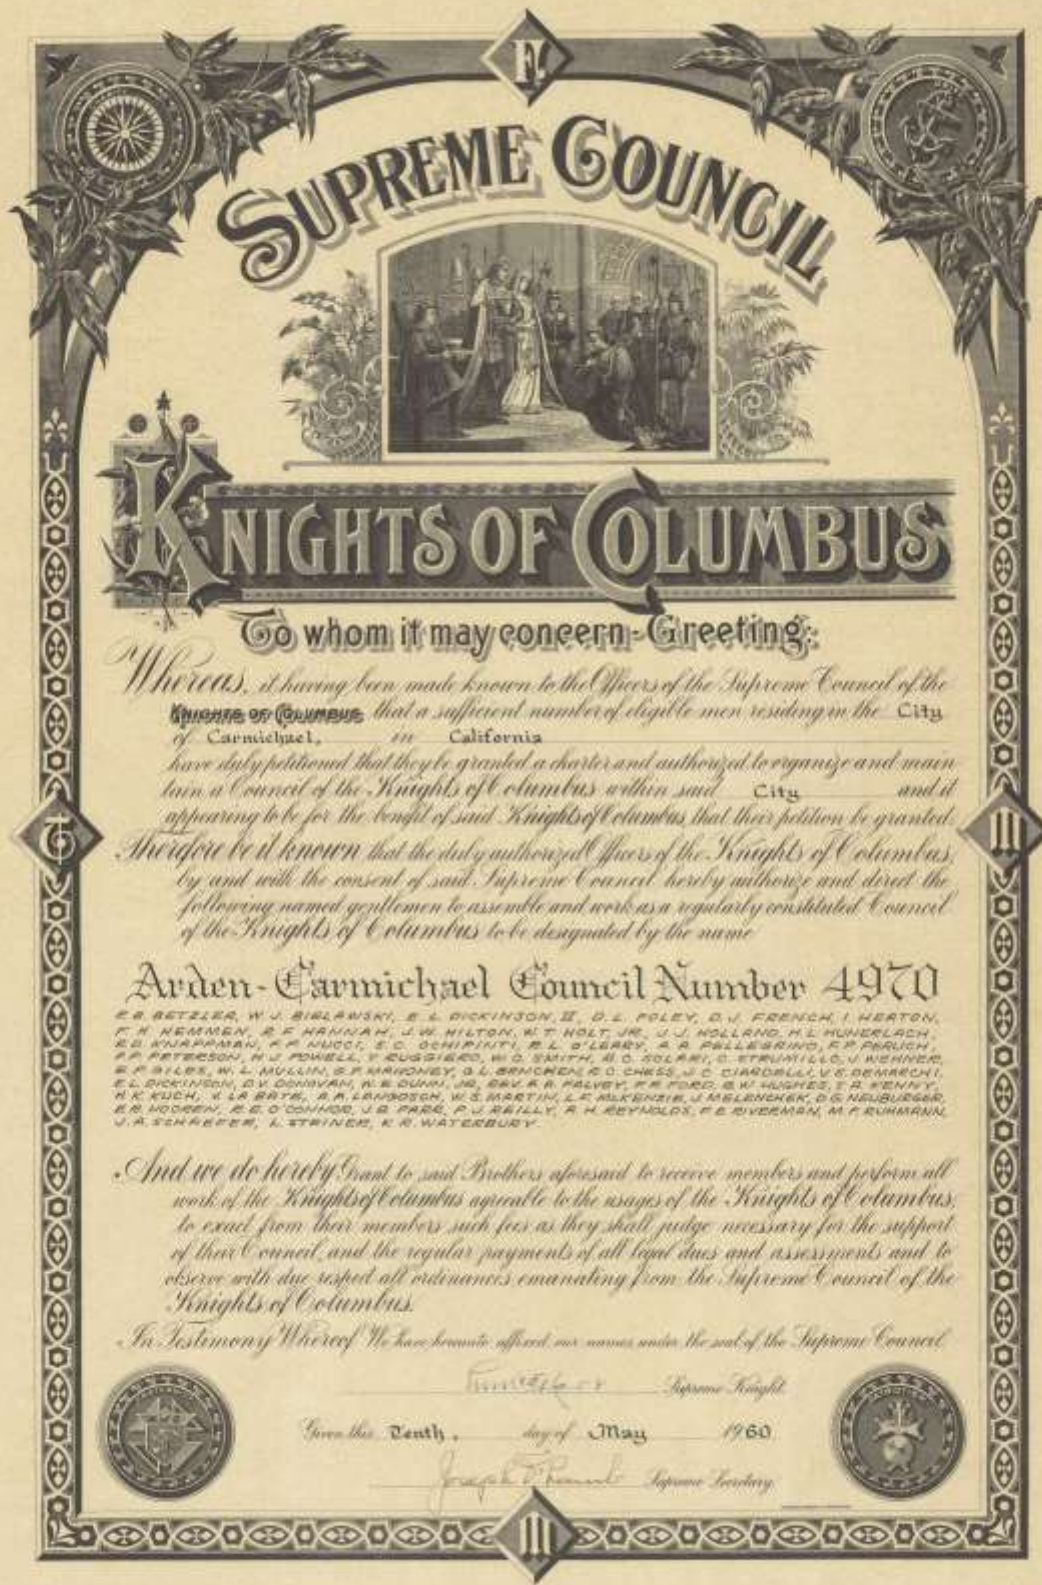 F.
SUPREME COUNCIL
KNIGHTS OF COLUMBUS
To whom it may concern - Greeting:
Whereas, it having been made known to the Officers of the Supreme Council of the
KNIGHTS OF COLUMBUS that a sufficient number of eligible men residing in the City
of Carmichael, in California
have duly petitioned that they be granted a charter and authorized to organize and main
tain a Council of the Knights of Columbus within said City and it
appearing to be for the benefit of said Knights of Columbus, that their petition be granted.
Therefore be it known that the duly authorized Officers of the Knights of Columbus,
by and with the consent of said Supreme Council hereby authorize and direct the
following named gentlemen to assemble and work as a regularly constituted Council
of the Knights of Columbus to be designated by the name
Arden-Carmichael Council Number 4970
E.B. BETZLER, W.J. BIELAWSKI, E.L. DICKINSON, II, D.L. FOLEY, D.J. FRENCH, I. HEATON,
F.H. HEMMEN, R.F. HANNAH, J.W. HILTON, W.T. HOLT, JR., J.J. HOLLAND, H.L. HUNERLACH,
KNAPPMAN, F.P. NUCCI, S.C. OCHIPINTI, R.L. O'LEARY, A.A. PELLEGRINO, F.P. PERLICH,
PETERSON, H.J. POWELL, V. RUGGIERO, W.O. SMITH, SOLARI, C. STRUMILLO, J. WEHNER,
E.F. GILES, W.L. MULLIN, G.F. MAHONEY, G.L. BENCKEN, R.C. CHESS, J.C. CIARDELLI, V.E. DEMARCHI,
E.L. DICKINSON, D.V. DONOVAN, W.E. DUNN, JR., REV. A.A. FALVEY, F.R. FORD, G.W. HUGHES, T.A. KENNY,
H.K. KUCH, V. LA BATE, A.A. LANGOSCH, W.S. MARTIN, L.F. McKENZIE, J. MELENCHEK, D.G. NEUBURGER,
E.R. NOOREN, R.E. O'CONNOR, J.B. PARR, P.J. REILLY, A.H. REYNOLDS, F.E. RIVERMAN, M.F. RUHMANN,
J.A. SCHAEFER, L. STEINER, K.R. WATERBURY
And we do hereby Grant to said Brothers aforesaid to receive members and perform all
work of the Knights of Columbus agreeable to the usages of the Knights of Columbus,
to exact from their members such fees as they shall judge necessary for the support
of their Council, and the regular payments of all legal dues and assessments and to
observe with due respect all ordinances emanating from the Supreme Council of the
Knights of Columbus.
In Testimony Whereof We have hereunto affixed our names under the seal of the Supreme Council
Supreme Knight.
Given this Tenth, day of May 1960
Joseph Supreme Secretary.